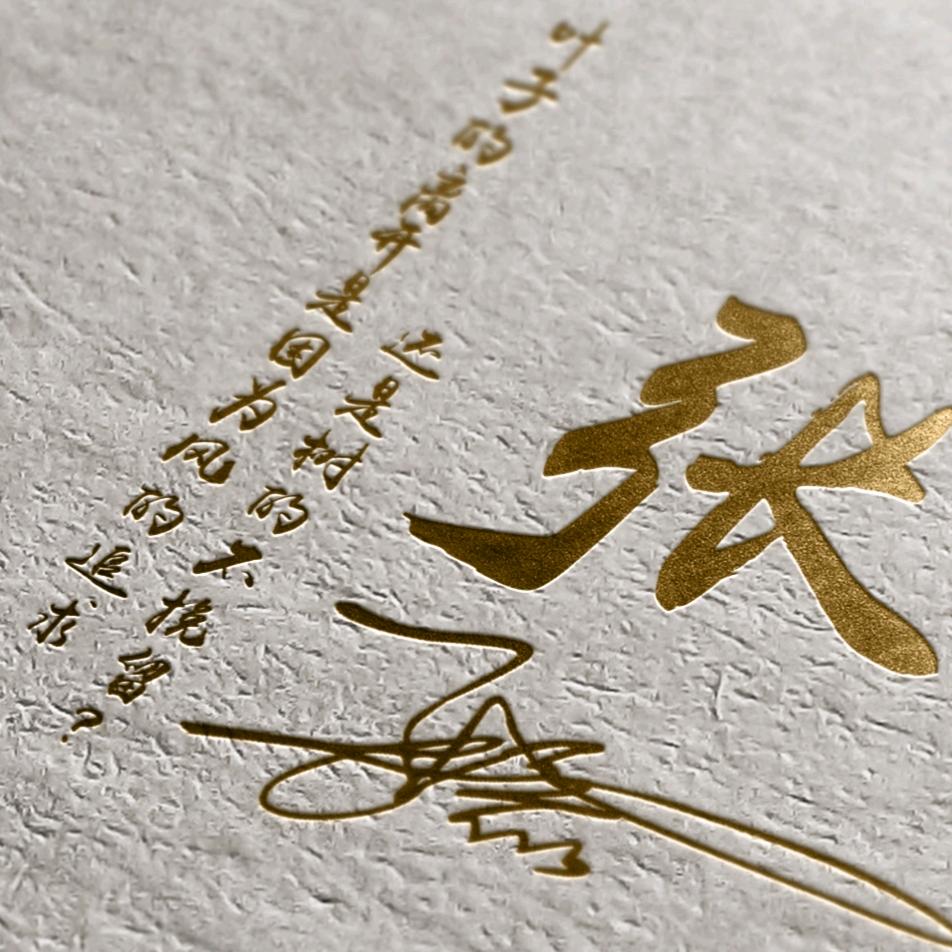 叶子的离开是因为风的追求
还是树的不挽留?
张